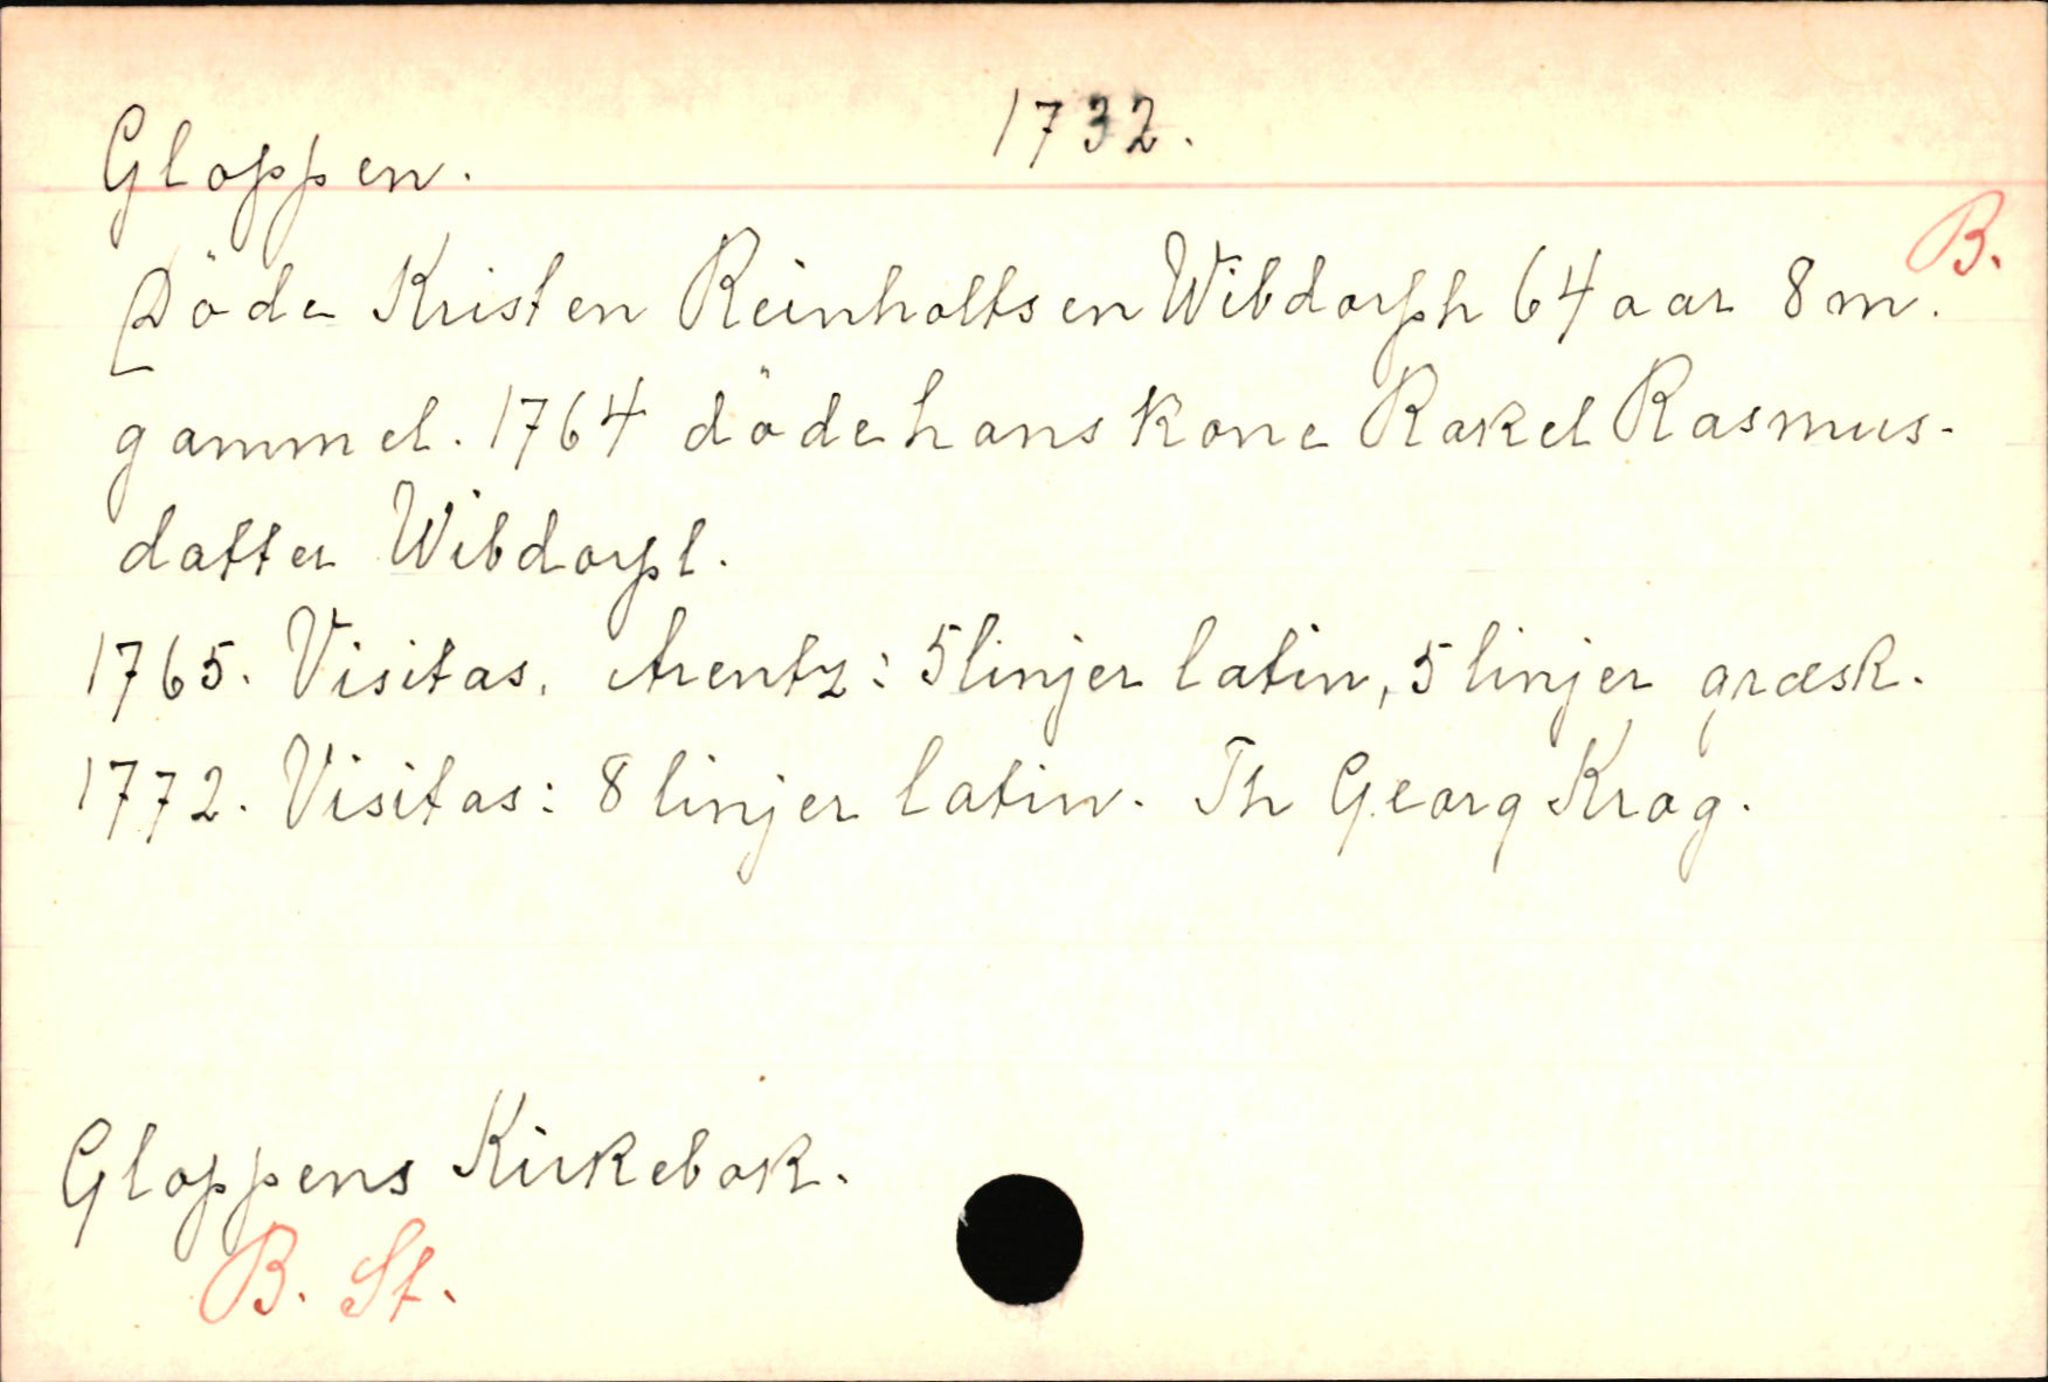 Gloppen.
1732.
B.
Döde Kristen Reinholtsen Wibdorph 64 aar 8 m.
gammel. 1764 döde hans kone Rakel Rasmus-
datter Wibdorpl.
1765. Visitas. Arentz: 5 linjer latin, 5 linjer græsk.
1772. Visitas: 8 linjer latin. Th Georg Krog.
Gloppens Kirkebok.
B. St.